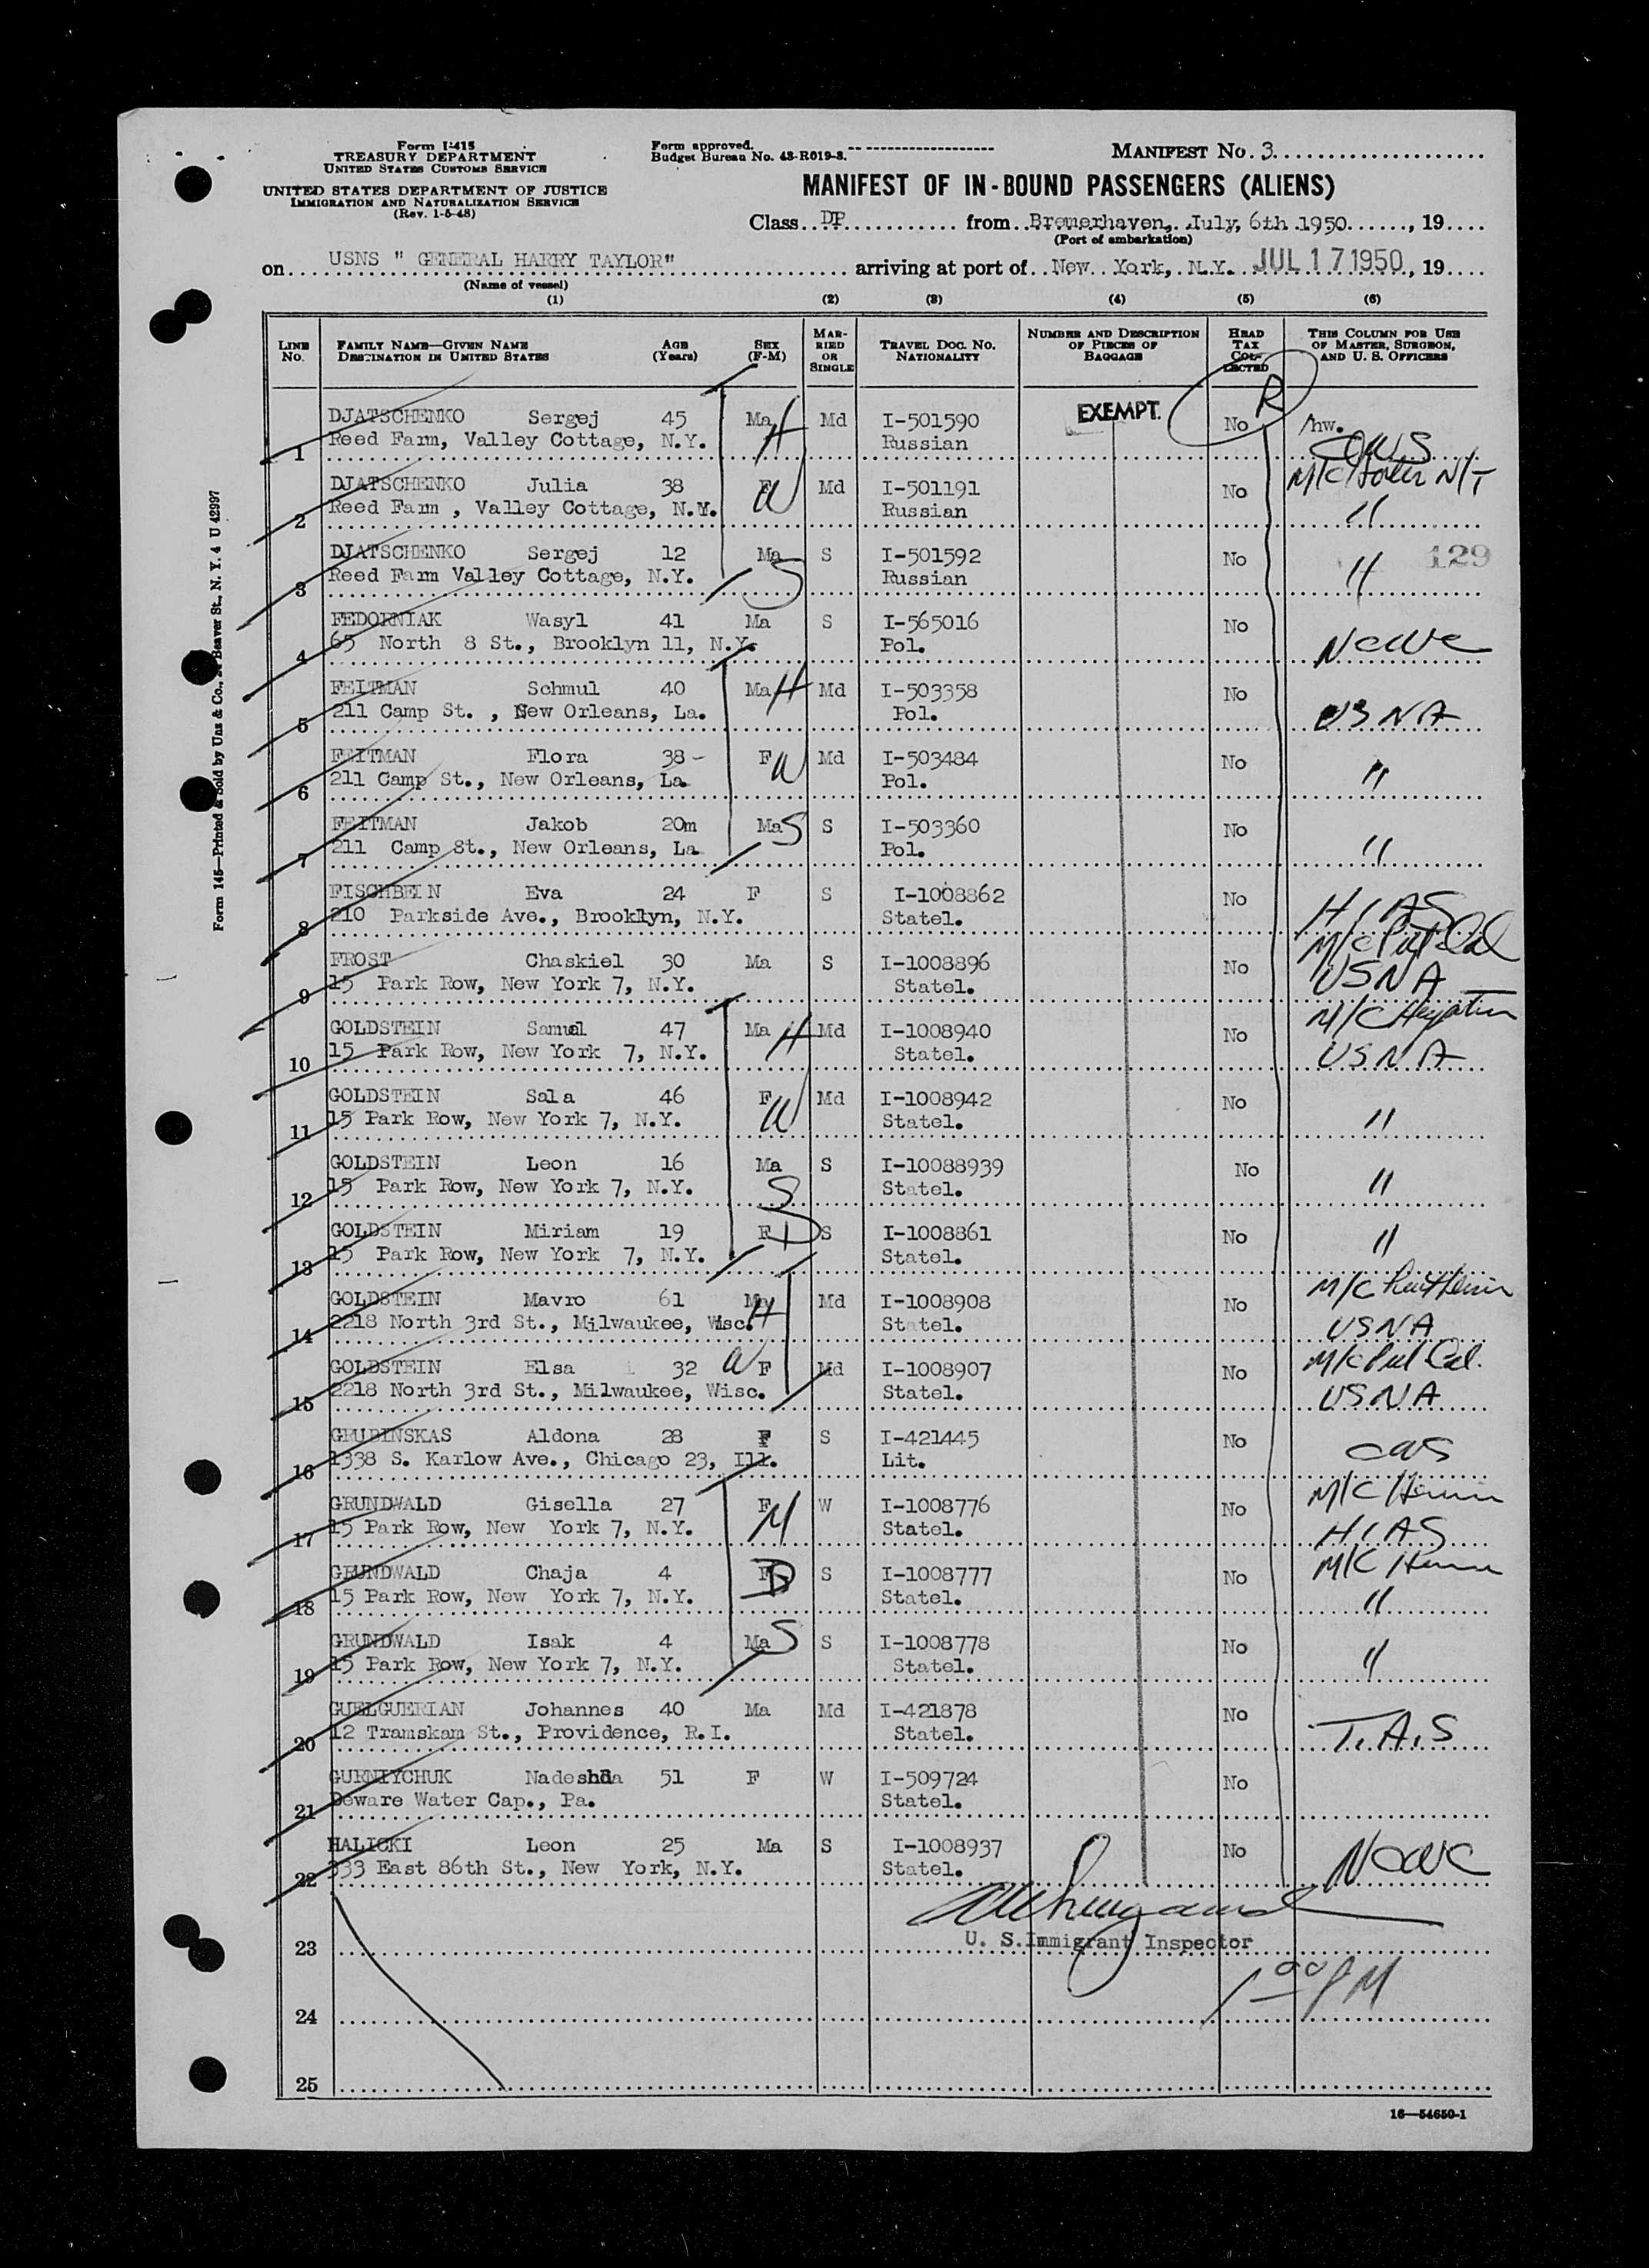 Form I-415
TREASURY DEPARTMENT
UNITED STATES CUSTOMS SERVICE
UNITED STATES DEPARTMENT OF JUSTICE
IMMIGRATION AND NATURALIZATION SERVICE
(Rev. 1-5-48)
Form approved.
Budget Bureau No. 43-R019-3.
MANIFEST NO. 3
MANIFEST OF IN-BOUND PASSENGERS (ALIENS)
Class DP from Bremerhaven, July, 6th 1950, 19
(Port of embarkation)
on USNS " GENERAL HARRY TAYLOR" arriving at port of New York, N.Y. JUL 17 1950, 19
(Name of vessel)
(1) (2) (3) (4) (5) (6)
LINE NO. FAMILY NAME—GIVEN NAME DESTINATION IN UNITED STATES AGE (Years) SEX (F-M) MARRIED OR SINGLE TRAVEL DOC. NO. NATIONALITY NUMBER AND DESCRIPTION OF PIECES OF BAGGAGE HEAD TAX COLLECTED THIS COLUMN FOR USE OF MASTER, SURGEON, AND U. S. OFFICERS
R
DJATSCHENKO Sergej 45 Ma H Md I-501590 EXEMPT. No /hw.
1 Reed Farm, Valley Cottage, N.Y. Russian CWS
DJATSCHENKO Julia 38 F W Md I-501191 No M/C N/T
2 Reed Farm , Valley Cottage, N.Y. Russian "
DJATSCHENKO Sergej 12 Ma S S I-501592 No 129
3 Reed Farm Valley Cottage, N.Y. Russian "
FEDORNIAK Wasyl 41 Ma S I-565016 No
4 65 North 8 St., Brooklyn 11, N.Y. Pol. NCWC
FEITMAN Schmul 40 Ma H Md I-503358 No
5 211 Camp St. , New Orleans, La. Pol. USNA
FEITMAN Flora 38 - F W Md I-503484 No
6 211 Camp St., New Orleans, La Pol. "
FEITMAN Jakob 20m Ma S S I-503360 No
7 211 Camp St., New Orleans, La Pol. "
FISCHBEIN Eva 24 F S I-1008862 No
8 210 Parkside Ave., Brooklyn, N.Y. Statel. HIAS
FROST Chaskiel 30 Ma S I-1008896 No M/C
9 15 Park Row, New York 7, N.Y. Statel. USNA
GOLDSTEIN Samual 47 Ma H Md I-1008940 No M/C
10 15 Park Row, New York 7, N.Y. Statel. USNA
GOLDSTEIN Sala 46 F W Md I-1008942 No
11 15 Park Row, New York 7, N.Y. Statel. "
GOLDSTEIN Leon 16 Ma S I-10088939 No
12 15 Park Row, New York 7, N.Y. S Statel. "
GOLDSTEIN Miriam 19 F D S I-1008861 No "
13 15 Park Row, New York 7, N.Y. Statel.
GOLDSTEIN Mavro 61 Ma H Md I-1008908 No M/C
14 2218 North 3rd St., Milwaukee, Wisc. Statel. USNA
GOLDSTEIN Elsa 32 W F Md I-1008907 No M/C
15 2218 North 3rd St., Milwaukee, Wisc. Statel. USNA
GRUBINSKAS Aldona 28 F S I-421445 No
16 1338 S. Karlow Ave., Chicago 23, Ill. Lit. CWS
GRUNDWALD Gisella 27 F M W I-1008776 No M/C
17 15 Park Row, New York 7, N.Y. Statel. HIAS
GRUNDWALD Chaja 4 F D S I-1008777 No M/C
18 15 Park Row, New York 7, N.Y. Statel. "
GRUNDWALD Isak 4 Ma S S I-1008778 No
19 15 Park Row, New York 7, N.Y. Statel. "
GUELGUERIAN Johannes 40 Ma Md I-421878 No
20 12 Tramskam St., Providence, R.I. Statel. T.A.S
GURNIYCHUK Nadeshda 51 F W I-509724 No
21 Deware Water Cap., Pa. Statel.
HALICKI Leon 25 Ma S I-1008937 No
22 333 East 86th St., New York, N.Y. Statel. NCWC
23 U. S. Immigrant Inspector
1 00 PM
24
25
16—54650-1
Form 145—Printed & Sold by Unz & Co., Beaver St., N. Y. 4 U 42997